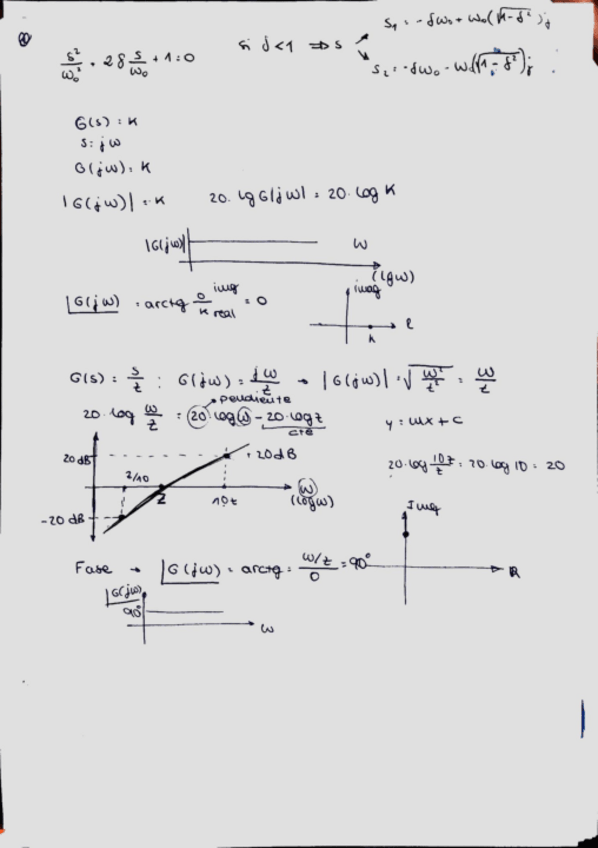 s²/ω₀² + 2δ s/ω₀ + 1 = 0
si δ<1 ⇒ s
s₁ = -δω₀ + ω₀(√1-δ²)j
s₂ = -δω₀ - ω₀(√1-δ²)j
G(s) = K
s = jω
G(jω) = K
|G(jω)| = K 20·log G|jω| = 20·log K
|G(jω)| ω
(lgω)
G(jω) = arctg 0/K imag real = 0
imag
K
G(s) = s/z : G(jω) = jω/z → |G(jω)| = √ω²/z² = ω/z
pendiente
20·log ω/z = 20 log ω - 20·log z
cte
y = mx + c
20 dB
z/10
+20dB
20·log 10z/z = 20·log 10 = 20
z 10z ω
(logω)
-20 dB
Imag
Fase → G(jω) = arctg = ω/z / 0 = 90°
R
G(jω)
90°
ω